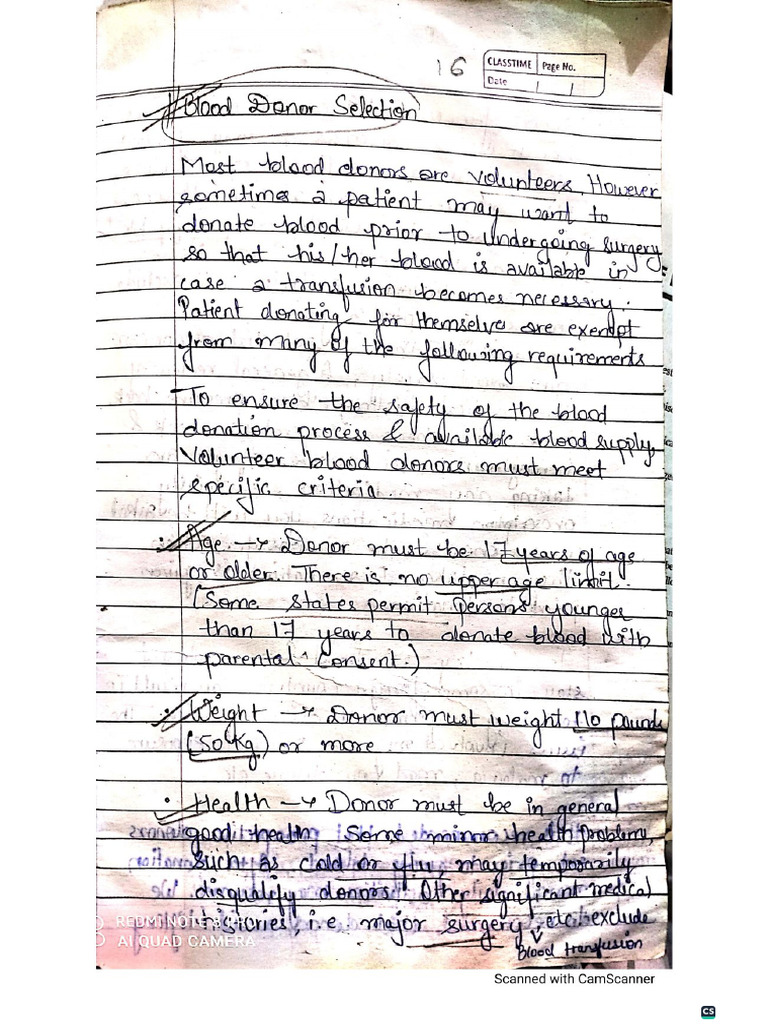 16
CLASSTIME Page No.
Date / /
Blood Donor Selection
Most blood donors are volunteers. However
sometimes a patient may want to
donate blood prior to undergoing surgery
so that his/her blood is available in
case a transfusion becomes necessary.
Patient donating for themselve are exempt
from many of the following requirements
To ensure the safety of the blood
donation process & available blood supply,
Volunteer blood donors must meet
specific criteria.
Age → Donor must be 17 years of age
or older. There is no upper age limit.
(Some states permit persons younger
than 17 years to donate blood with
parental consent.)
Weight → Donor must weight 110 pounds
(50 Kg) or more
Health → Donor must be in general
good health. Some minor health problem,
such as cold or flu, may temporarily
disqualify donors. Other significant medical
histories, i.e major surgery, etc. exclude
Blood transfusion
REDMI NOTE
AI QUAD CAMERA
Scanned with CamScanner
CS